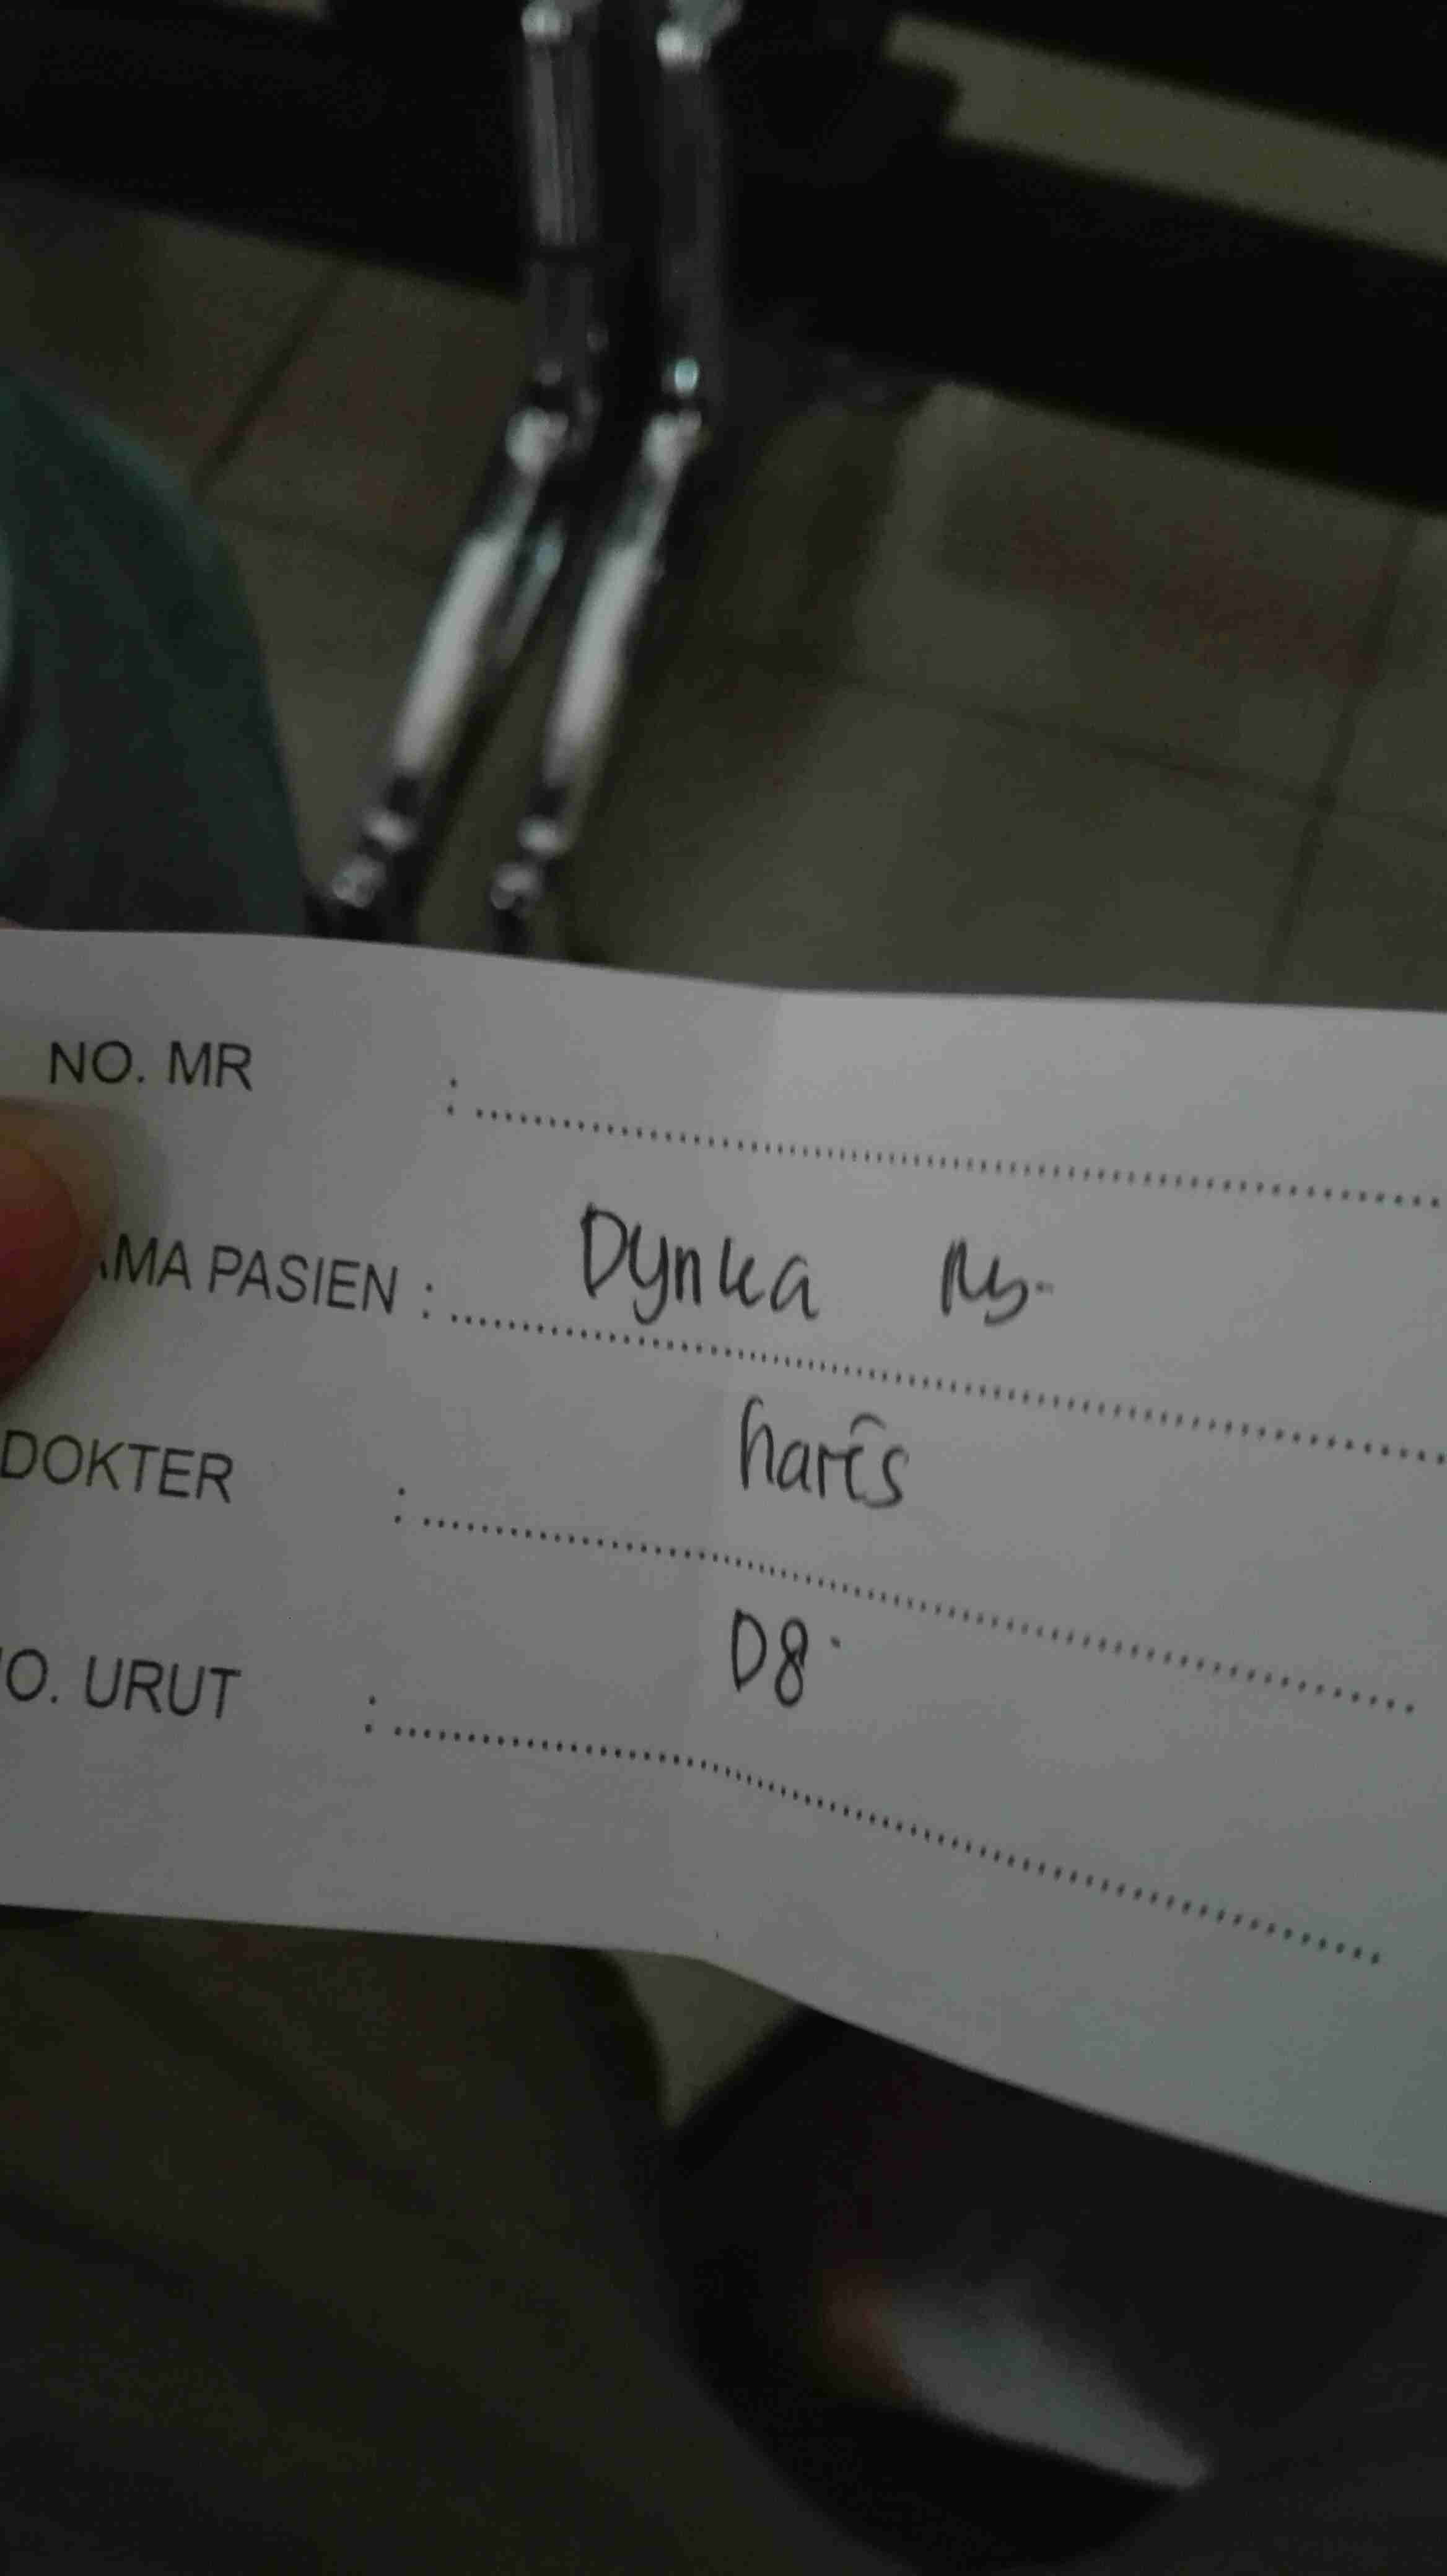 NO. MR : ....................
AMA PASIEN : Dynka
DOKTER : haris
O. URUT : D8